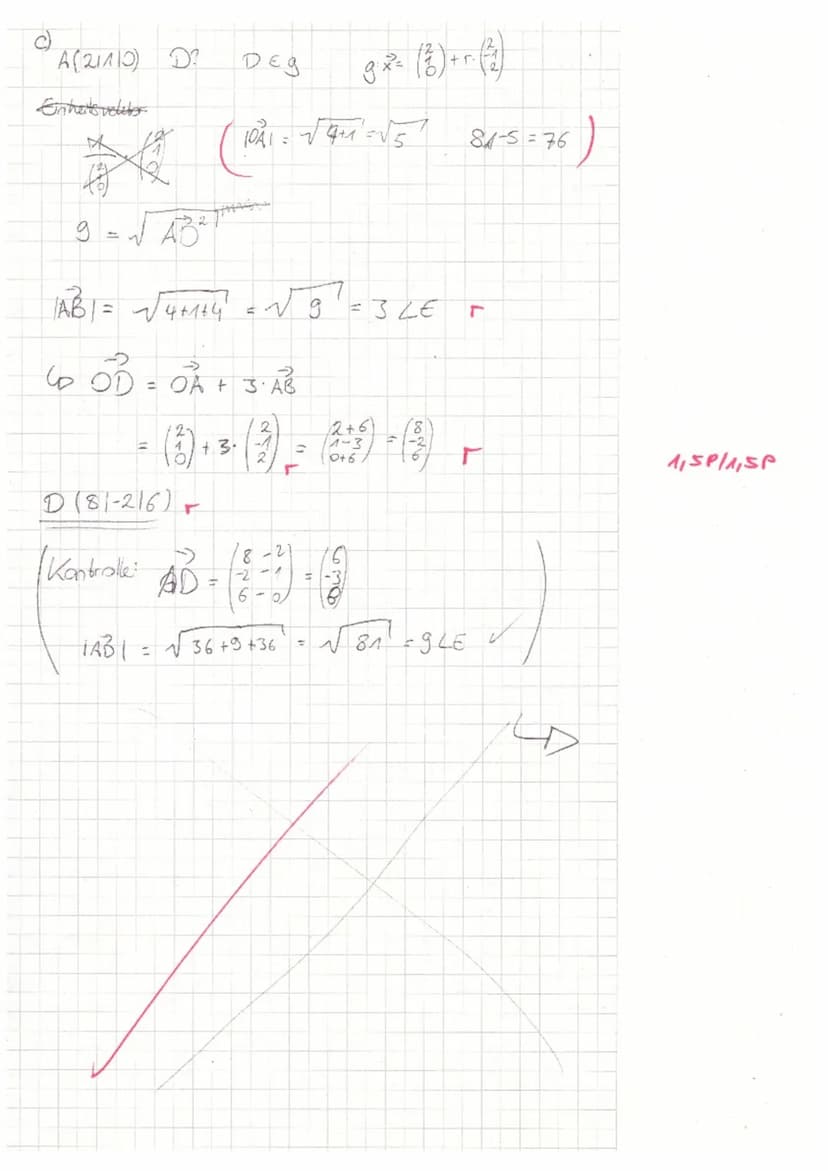 c)
A(2|1|0) D? D ∈ g g: x⃗ = (2 1 0) + r · (2 -1 2)
Einheitsvektor
(2 1 0)
( |OA⃗| = √4+1 = √5 81-5 = 76 )
9 = √AD⃗²
|AB⃗| = √4+1+4 = √9 = 3 LE r
↳ OD⃗ = OA⃗ + 3 · AB⃗
= (2 1 0) + 3 · (2 -1 2) r = (2+6 1-3 0+6) = (8 -2 6) r
1,5P/1,5P
D (8|-2|6) r
(Kontrolle: AD⃗ = (8-2 -2-1 6-0) = (6 -3 6)
|AB⃗| = √36+9+36 = √81 = 9 LE ✓ )